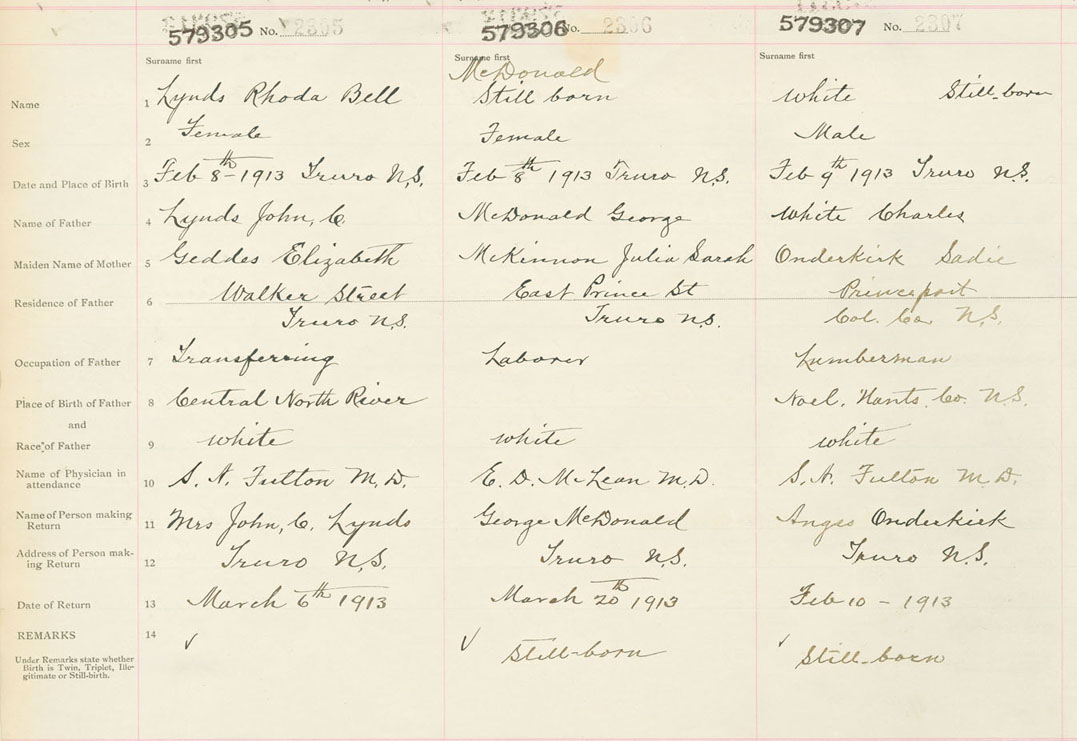 579305 No. 2305
579306 No. 2306
579307 No. 2307
Surname first
Surname first
Surname first
Name
1 Lynds Rhoda Bell
McDonald
Still born
White Still-born
Sex
2 Female
Female
Male
Date and Place of Birth
3 Feb 8th 1913 Truro N.S.
Feb 8th 1913 Truro N.S.
Feb 9th 1913 Truro N.S.
Name of Father
4 Lynds John, C
McDonald George
White Charles
Maiden Name of Mother
5 Geddes Elizabeth
McKinnon Julia Sarah
Onderkirk Sadie
Residence of Father
6 Walker Street
Truro N.S.
East Prince St
Truro N.S.
Princeport
Col. Co. N.S.
Occupation of Father
7 Transferring
Laborer
Lumberman
Place of Birth of Father
8 Central North River
Noel, Hants. Co. N.S.
and
Race of Father
9 white
white
white
Name of Physician in
attendance
10 S. N. Fulton M.D.
E. D. McLean M.D.
S. N. Fulton M.D.
Name of Person making
Return
11 Mrs John, C. Lynds
George McDonald
Onderkirk
Address of Person mak-
ing Return
12 Truro N.S.
Truro N.S.
Truro N.S.
Date of Return
13 March 6th 1913
March 20th 1913
Feb 10 - 1913
REMARKS
14
Under Remarks state whether
Birth is Twin, Triplet, Ille-
gitimate or Still-birth.
Still-born
Still-born